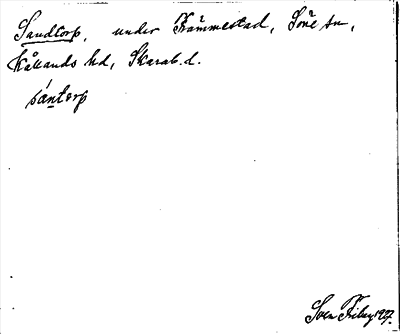 Sandtorp, under Trämmestad, Söne sn,
Kållands hd, Skarab. l.
sántorp
Sven Friby 1927.